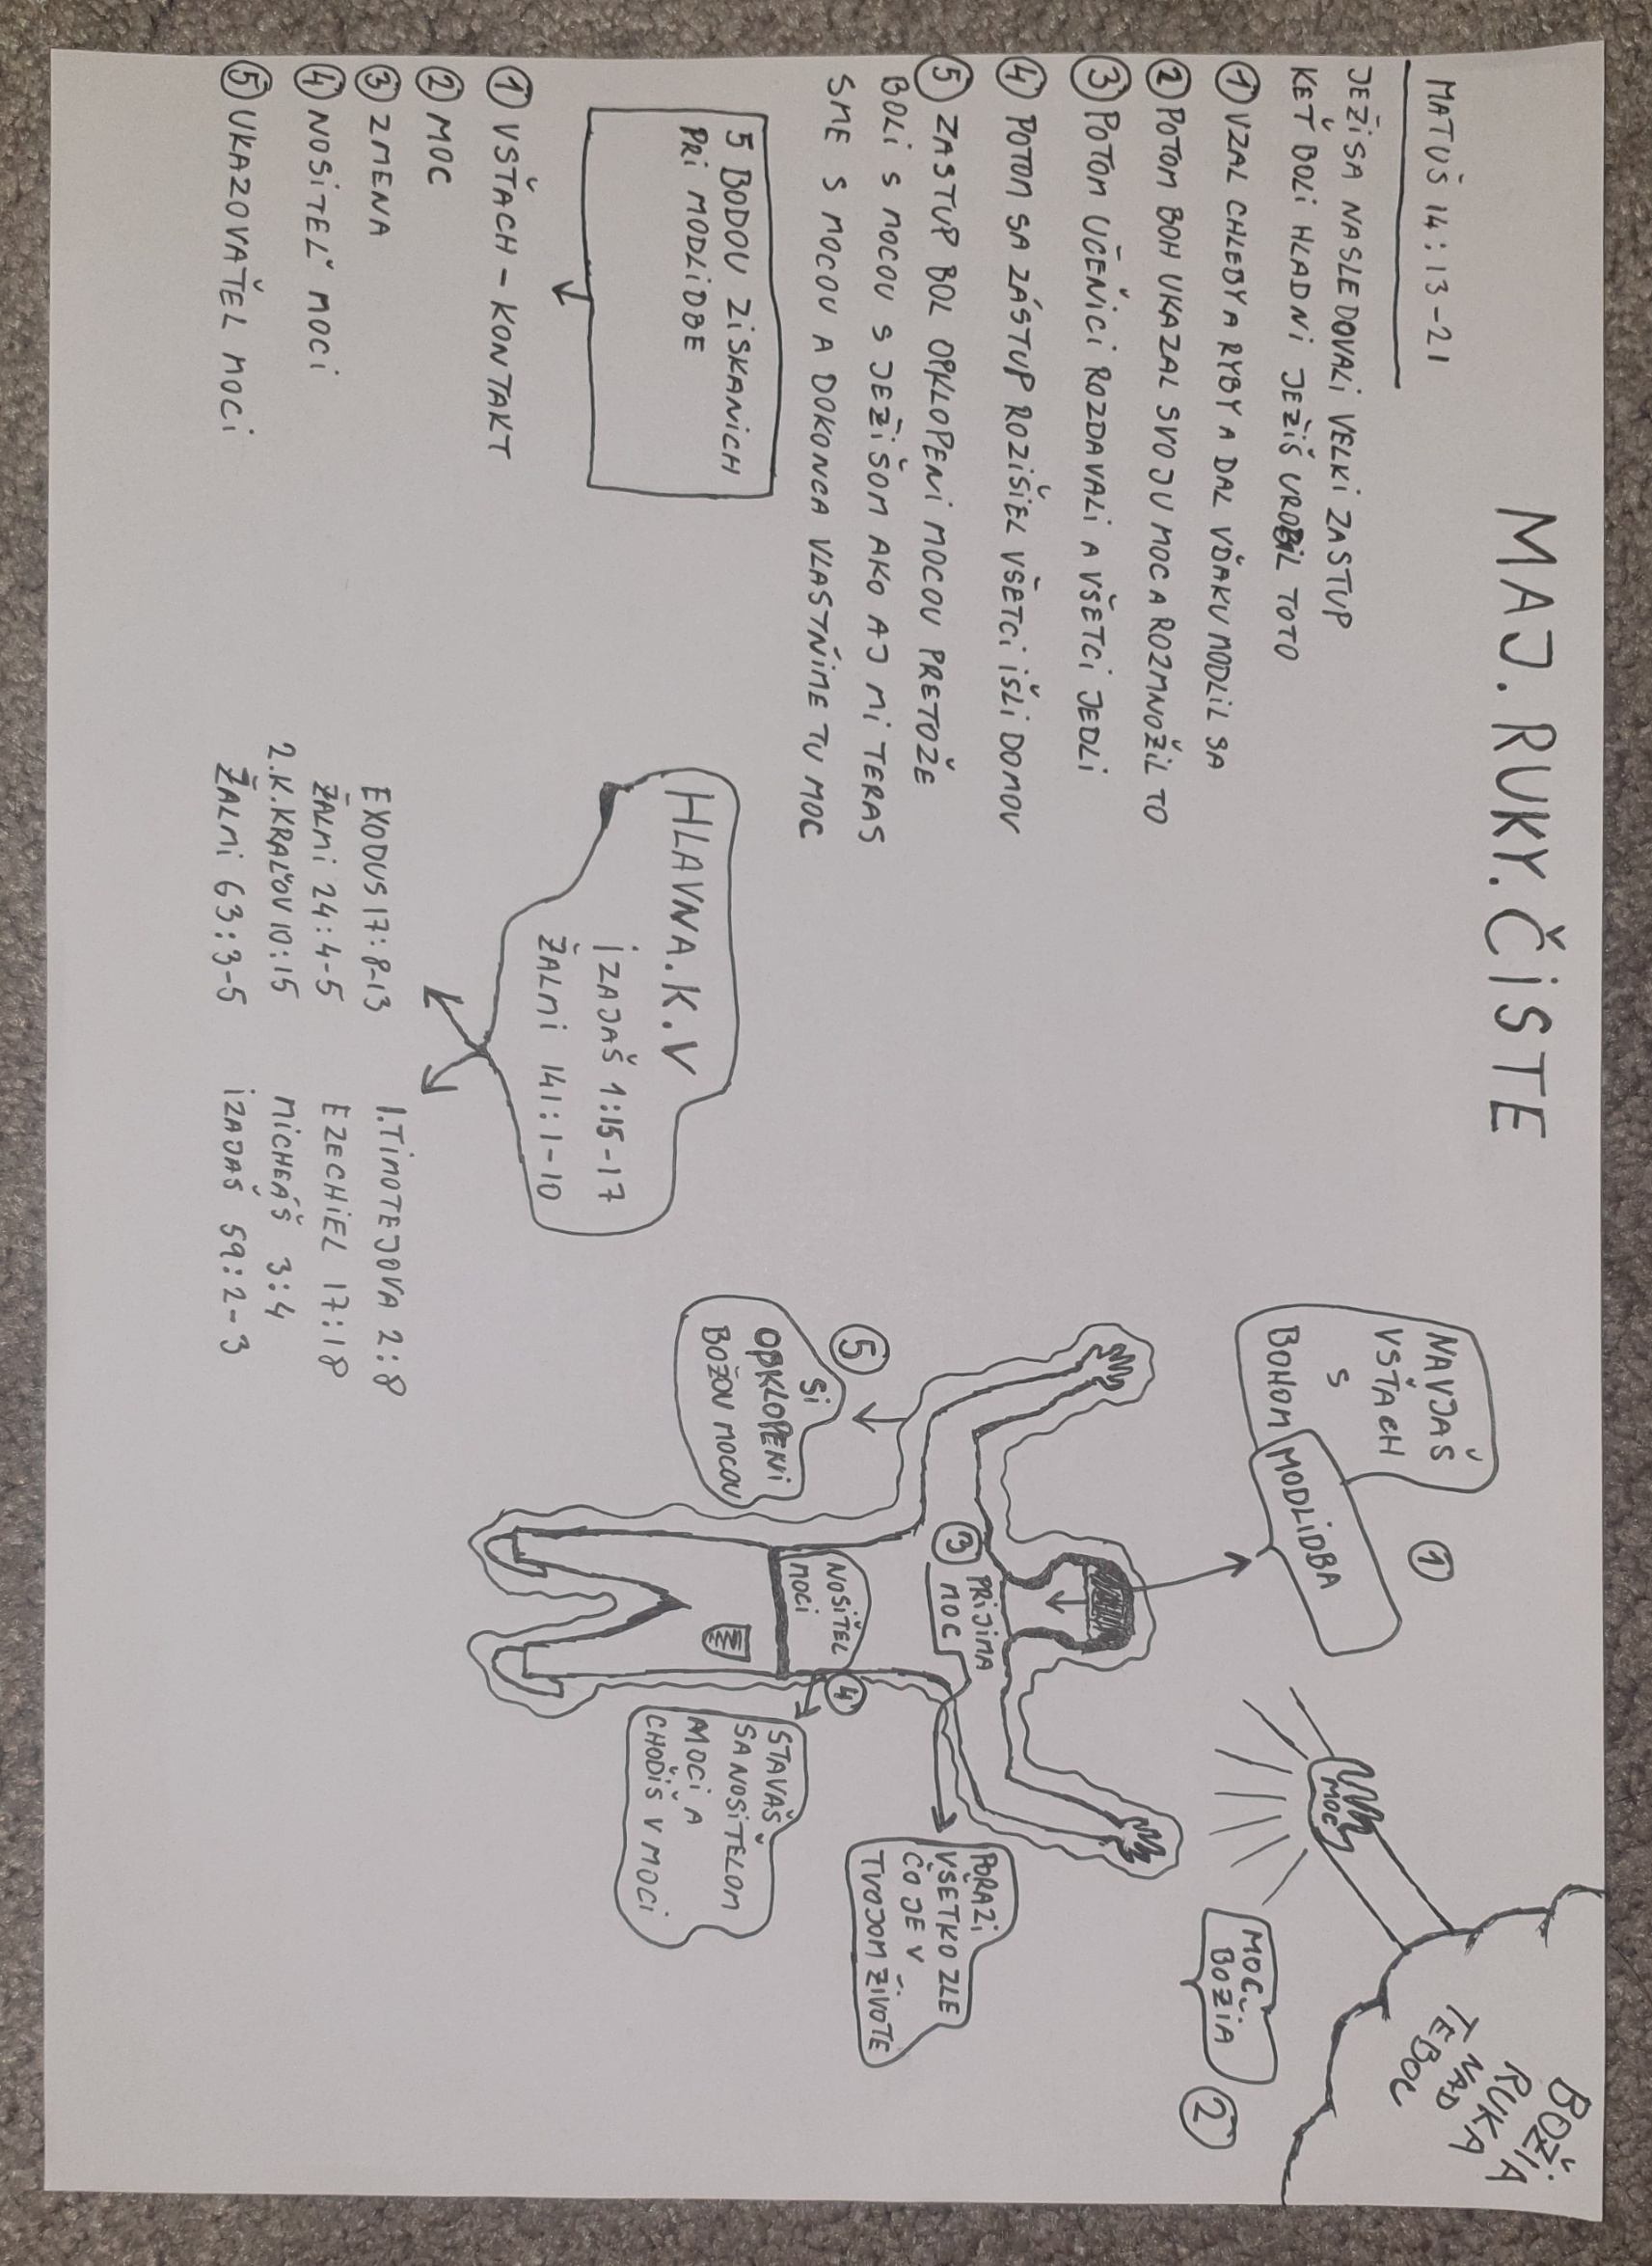 MAJ. RUKY. ČISTE
MATUŠ 14:13-21
JEŽiSA NASLEDOVALi VELKi ZASTUP
KEŤ BOLi HLADNi JEŽiŠ UROBiL TOTO
① VZAL CHLEBY A RYBY A DAL VĎAKU MODLiL SA
② POTOM BOH UKAZAL SVOJU MOC A ROZMNOŽiL TO
③ POTOM UČEŇiCi ROZDAVALi A VŠETCi JEDLi
④ POTOM SA ZÁSTUP ROZiŠiEL VŠETCi iŠLi DOMOV
⑤ ZASTUP BOL OPKLOPENi MOCOU PRETOŽE
BOLi S MOCOU S JEŽiŠOM AKO AJ Mi TERAS
SME S MOCOU A DOKONCA VLASTŇiME TU MOC
5 BODOU ZiSKANiCH
PRi MODLiDBE
① VSŤACH - KONTAKT
② MOC
③ ZMENA
④ NOSiTEĽ MOCi
⑤ UKAZOVAŤEL MOCi
HLAVNA. K. V
iZAJAŠ 1:15-17
ŽALMi 141:1-10
EXODUS 17:8-13
ŽALMi 24:4-5
2.K.KRAĽOV 10:15
ŽALMi 63:3-5
1.TiMOTEJOVA 2:8
EZECHiEL 17:18
MiCHEÁŠ 3:4
iZAJAŠ 59:2-3
NAVJAŠ
VSŤACH
S
BOHOM
MODLiDBA
①
BOŽiA
RUKA
NAD
TEBOU
MOC
MOC
BOŽiA
②
③ PRiJiMA
MOC
PORAZi
VŠETKO ZLE
ČO JE V
TVOJOM ŽiVOTE
NOSiŤEL
MOCi
④
STAVAŠ
SA NOSiTELOM
MOCi A
CHOĎiŠ V MOCi
⑤
Si
OBKLOPENi
BOŽOU MOCOU